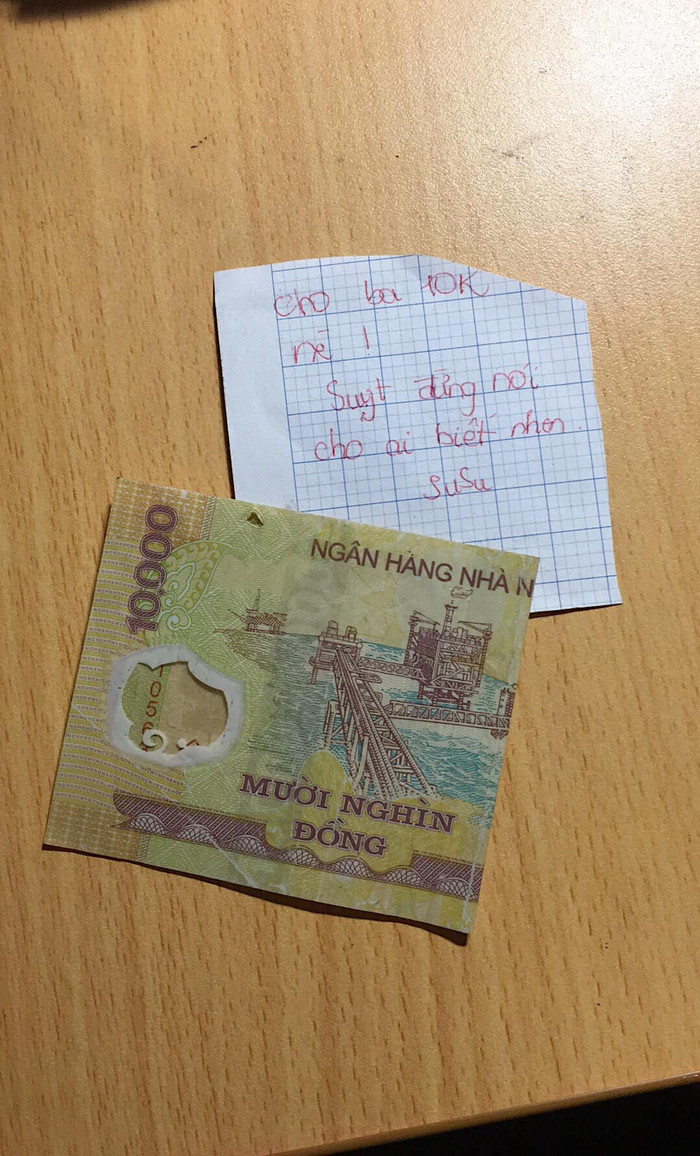 cho ba 10K
nè !
Suỵt đừng nói
cho ai biết nhen.
SuSu
NGÂN HÀNG NHÀ N
10.000
MƯỜI NGHÌN
ĐỒNG